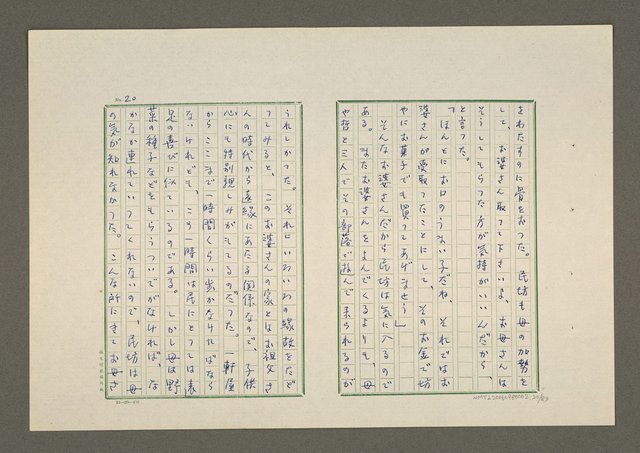 をわたすのに骨をおった。民坊も母の加勢を
して、お婆さん取って下さいよ、お母さんは
そうしてもらった方が気持がいいんだから、
と言った。
「ほんとにお口のうまい子だね、それではお
婆さんが受取ったことにして、そのお金で坊
やにお菓子でも買ってあげませう」
そんなお婆さんだから民坊は気に入るので
ある。またお婆さんをよんでくるよりも、母
や哲と三人でその部落で遊んで来られるのが
うれしかった。それにいろいろの縁故をたど
ってみると、このお婆さんの家とはお祖父さ
人の時代から遠縁にあたる関係なので、子供
心にも特別親しみがもてるのだった。一軒屋
からここまで一時間くらい歩かなければなら
ないけれども、この一時間は民にとっては素
足の喜びに似ているのである。しかし母は野
菜の種子などをもらうついでがなければ、な
かなか連れていってくれないので、民坊は母
の気が知れなかった。こんな所にきてお母さ
No. 20
NMTL20050980002_20/83